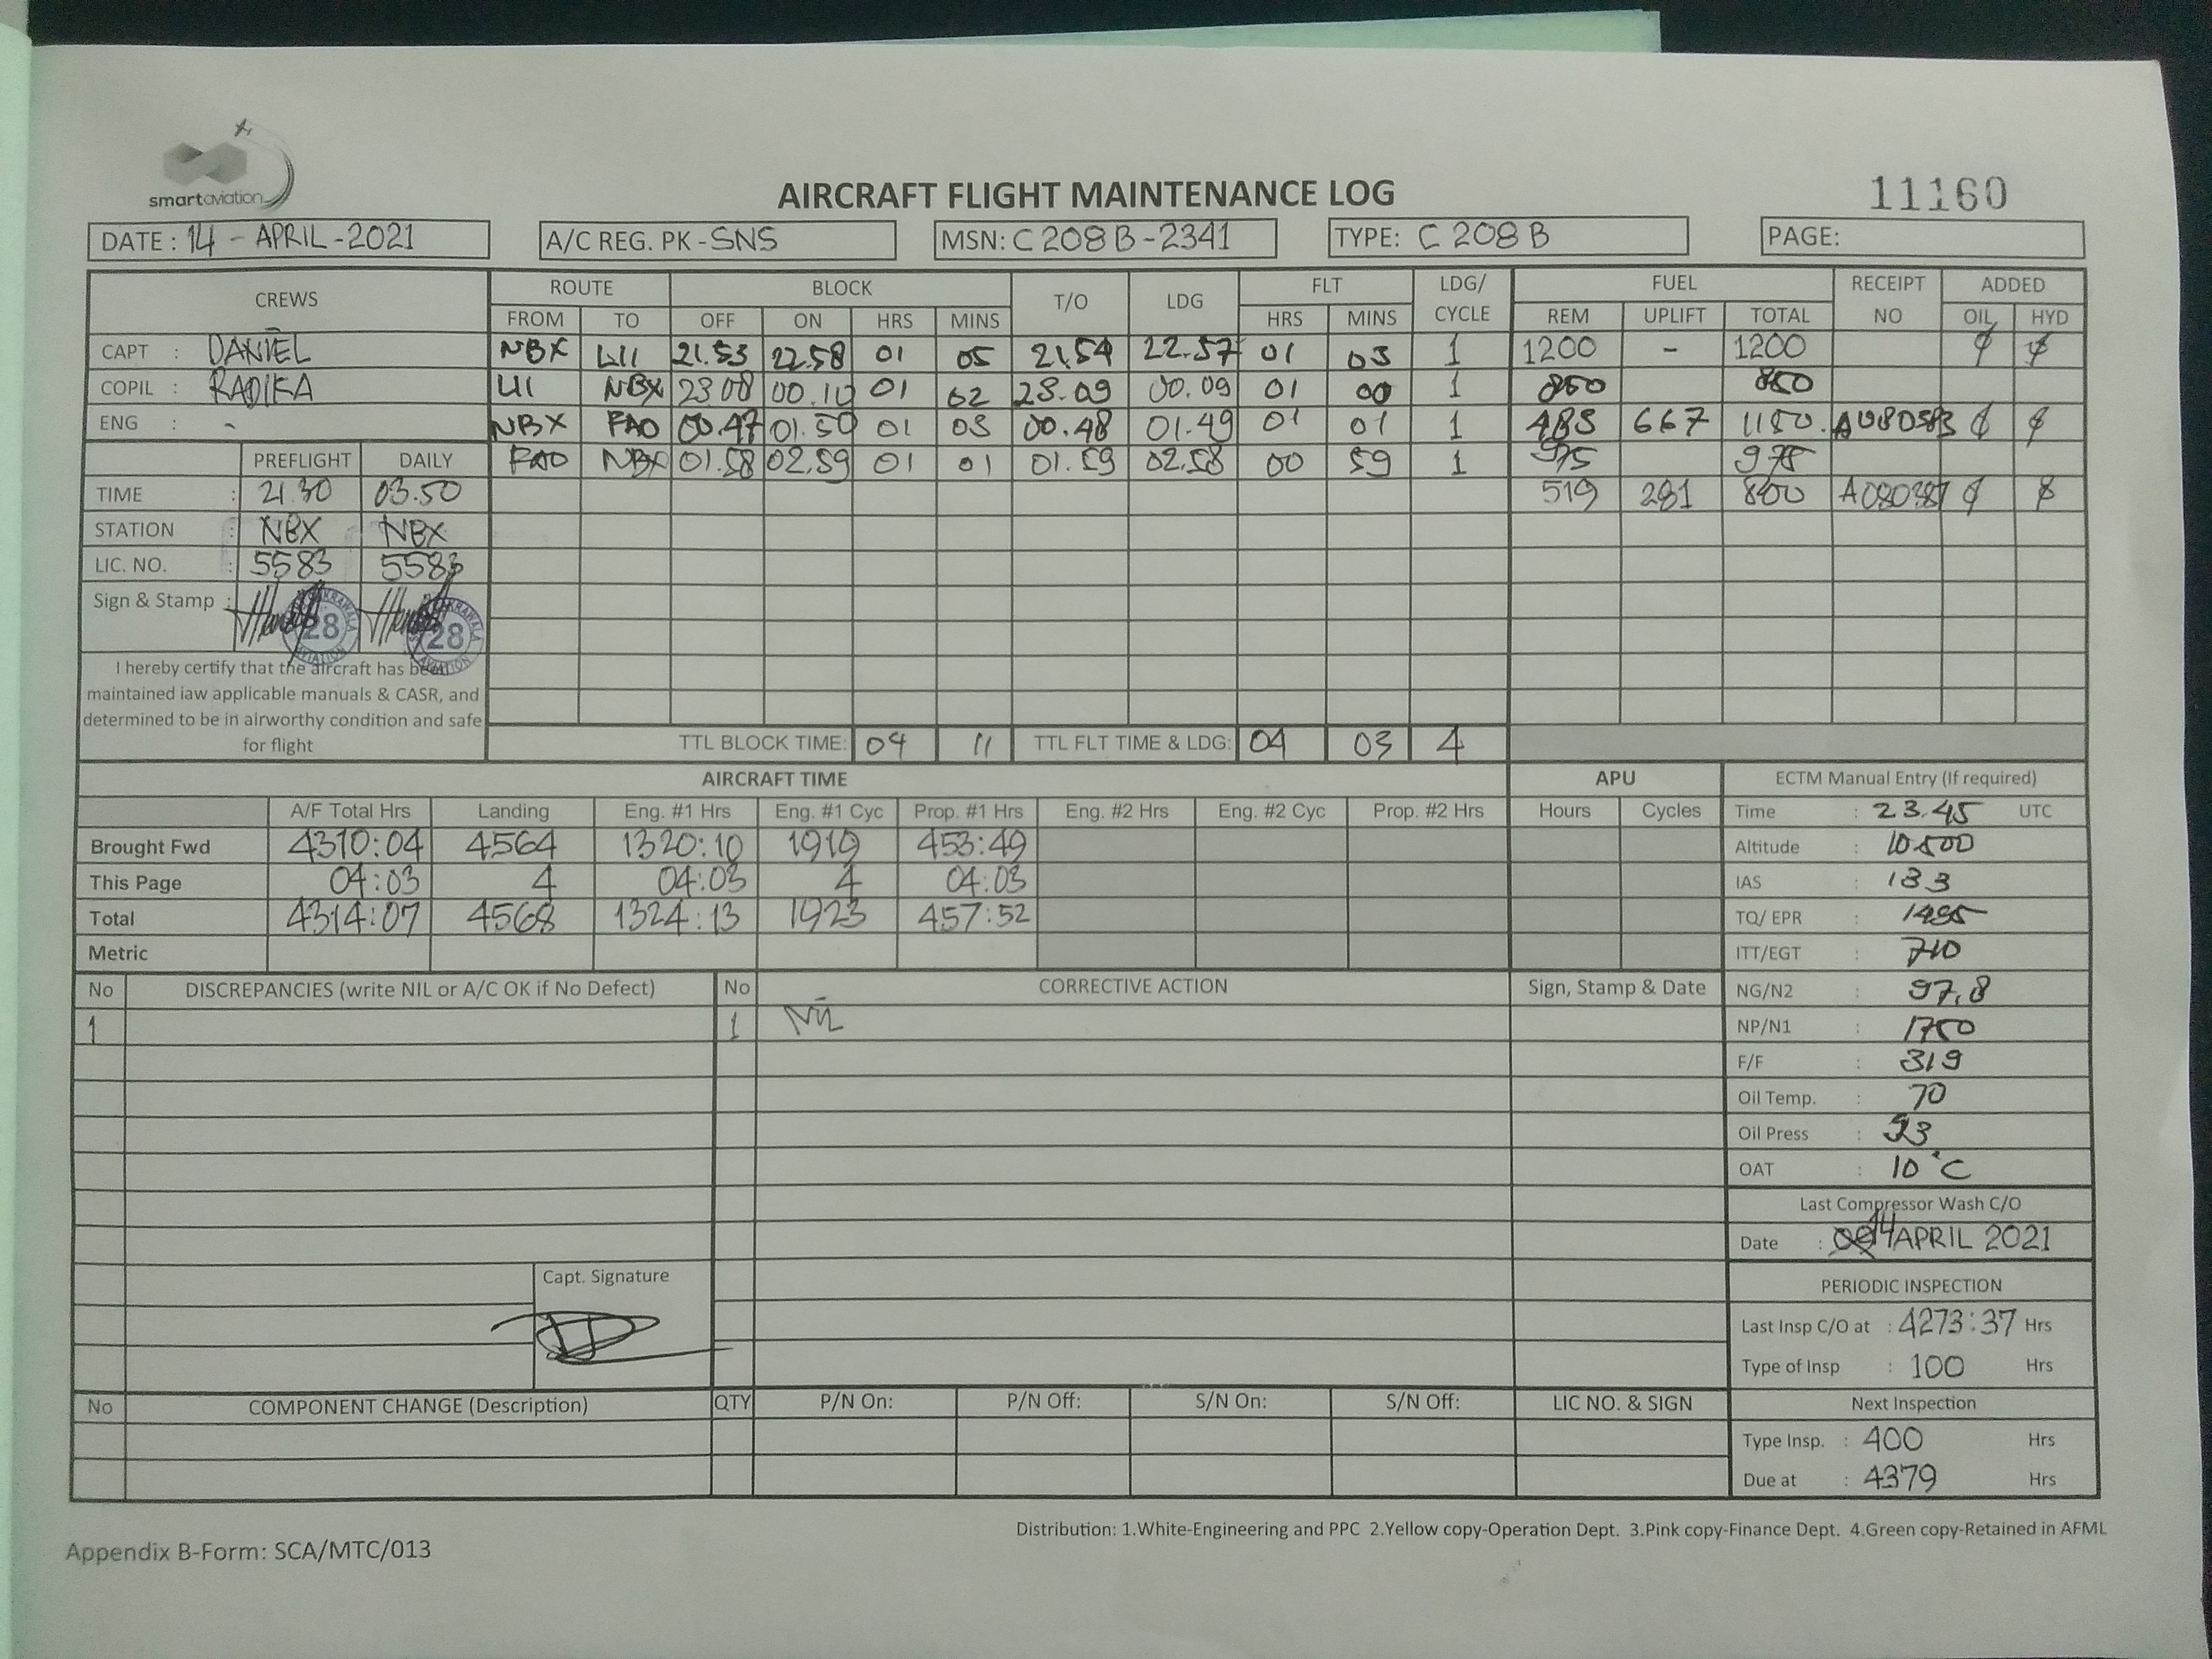 smartaviation
AIRCRAFT FLIGHT MAINTENANCE LOG
11160
DATE : 14 - APRIL - 2021 A/C REG. PK - SNS MSN: C 208 B - 2341 TYPE: C 208 B PAGE:
CREWS ROUTE BLOCK T/O LDG FLT LDG/ CYCLE FUEL RECEIPT NO ADDED
FROM TO OFF ON HRS MINS HRS MINS REM UPLIFT TOTAL OIL HYD
CAPT : DANIEL NBX UII 21.53 22.58 01 05 21.54 22.57 01 03 1 1200 - 1200
COPIL : RADIKA UII NBX 23.08 00.10 01 02 23.09 00.09 01 00 1 850 850
ENG : - NBX FAO 00.47 01.50 01 03 00.48 01.49 01 01 1 483 667 1150
FAO NBX 01.58 02.59 01 01 01.59 02.58 00 59 1 975 975
519 281 800
PREFLIGHT DAILY
TIME : 21.30 03.50
STATION : NBX NBX
LIC. NO. : 5583 5583
Sign & Stamp : 28 28
I hereby certify that the aircraft has been
maintained iaw applicable manuals & CASR, and
determined to be in airworthy condition and safe
for flight
TTL BLOCK TIME: 04 11 TTL FLT TIME & LDG: 04 03 4
AIRCRAFT TIME APU
A/F Total Hrs Landing Eng. #1 Hrs Eng. #1 Cyc Prop. #1 Hrs Eng. #2 Hrs Eng. #2 Cyc Prop. #2 Hrs Hours Cycles
Brought Fwd 4310:04 4564 1320:10 1919 453:49
This Page 04:03 4 04:03 4 04:03
Total 4314:07 4568 1324:13 1923 457:52
Metric
ECTM Manual Entry (If required)
Time : 23.45 UTC
Altitude : 10500
IAS : 133
TQ/ EPR : 1485
ITT/EGT : 710
NG/N2 : 97,8
NP/N1 : 1750
F/F : 319
Oil Temp. : 70
Oil Press : 93
OAT : 10 °C
Last Compressor Wash C/O
Date : 14 APRIL 2021
PERIODIC INSPECTION
Last Insp C/O at : 4273:37 Hrs
Type of Insp : 100 Hrs
Next Inspection
Type Insp. : 400 Hrs
Due at : 4379 Hrs
No DISCREPANCIES (write NIL or A/C OK if No Defect) No CORRECTIVE ACTION Sign, Stamp & Date
1 1 Nil
Capt. Signature
No COMPONENT CHANGE (Description) QTY P/N On: P/N Off: S/N On: S/N Off: LIC NO. & SIGN
Distribution: 1.White-Engineering and PPC 2.Yellow copy-Operation Dept. 3.Pink copy-Finance Dept. 4.Green copy-Retained in AFML
Appendix B-Form: SCA/MTC/013